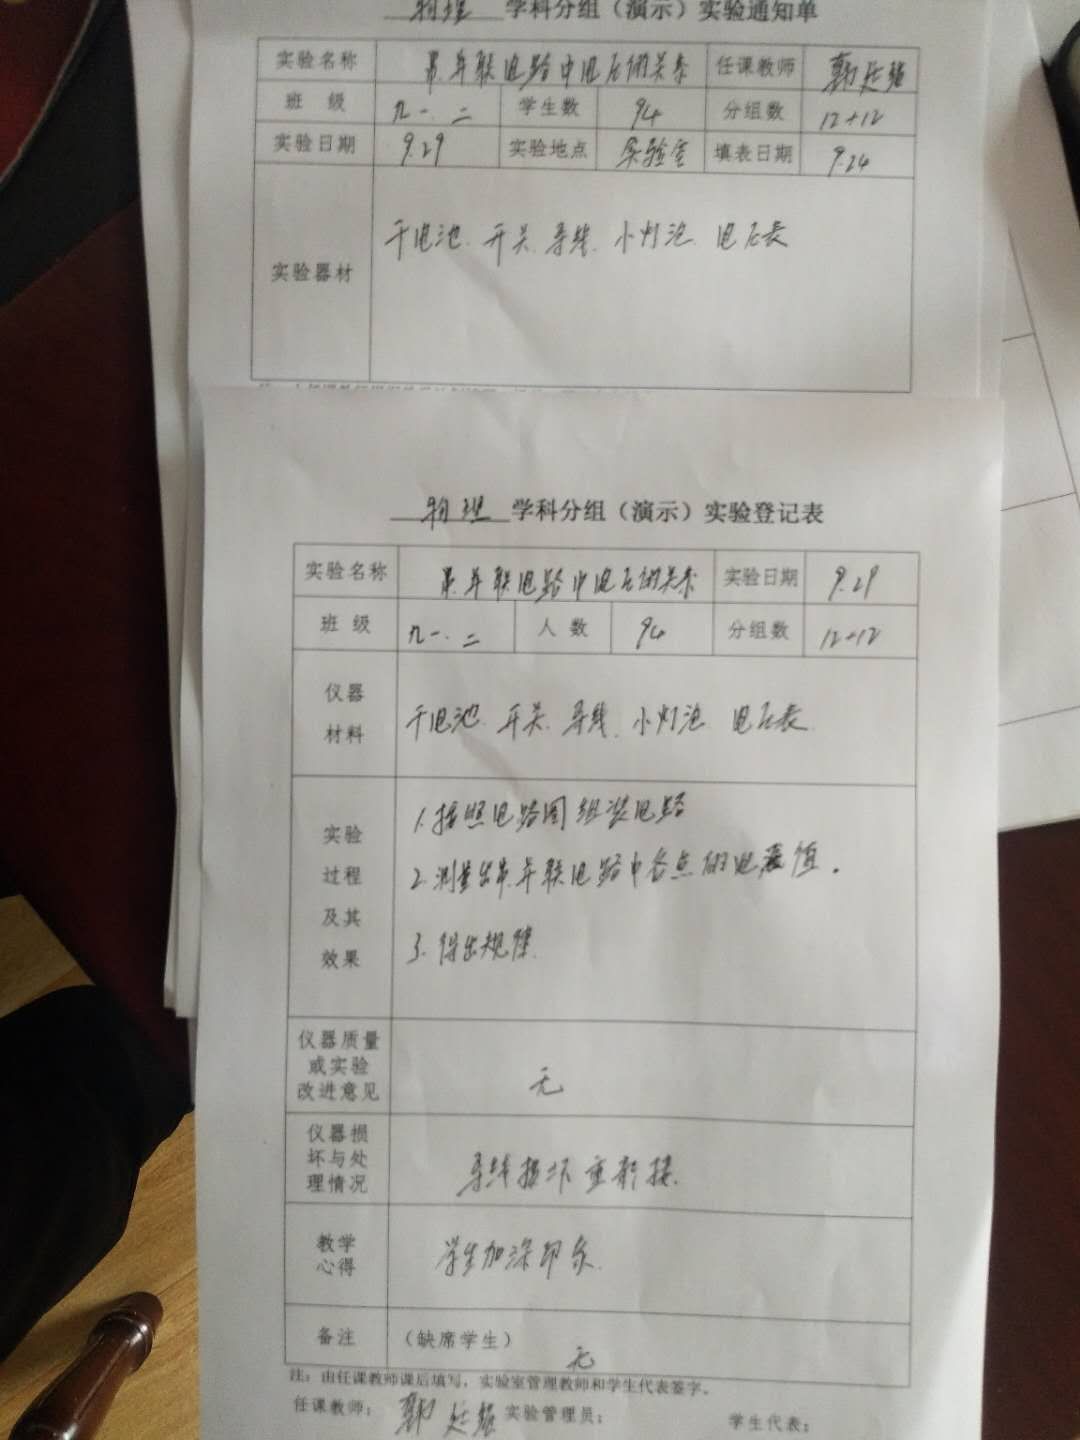 物理 学科分组（演示）实验通知单
实验名称 串.并联电路中电压的关系 任课教师
班 级 九一.二 学生数 94 分组数 12+12
实验日期 9.29 实验地点 实验室 填表日期 9.24
实验器材 干电池.开关.导线.小灯泡.电压表
物理 学科分组（演示）实验登记表
实验名称 串.并联电路中电压的关系 实验日期 9.29
班 级 九一.二 人 数 94 分组数 12+12
仪器
材料
干电池.开关.导线.小灯泡.电压表
实验
过程
及其
效果
1.按照电路图组装电路
2.测量出串.并联电路中各点的电 值.
3.得出规律.
仪器质量
或实验
改进意见
无
仪器损
坏与处
理情况
导线损坏重新接.
教学
心得
学生加深印象.
备注 （缺席学生）
无
注：由任课教师课后填写，实验室管理教师和学生代表签字。
任课教师： 实验管理员： 学生代表：